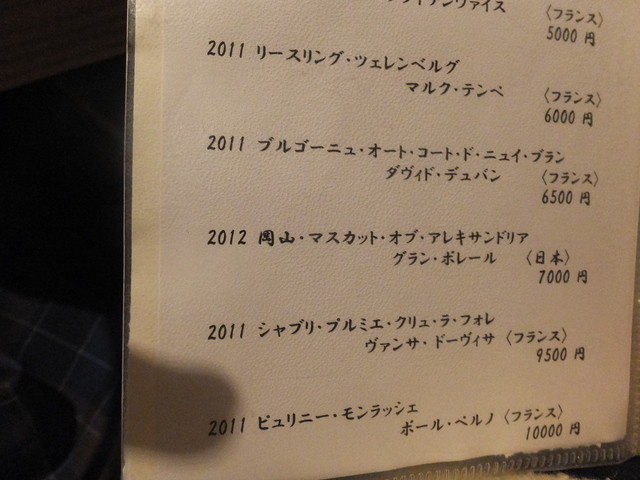 〈フランス〉
5000 円
2011 リースリング・ツェレンベルグ
マルク・テンペ 〈フランス〉
6000 円
2011 ブルゴーニュ・オート・コート・ド・ニュイ・ブラン
ダヴィド・デュバン 〈フランス〉
6500 円
2012 岡山・マスカット・オブ・アレキサンドリア
グラン・ポレール 〈日本〉
7000 円
2011 シャブリ・プルミエ・クリュ・ラ・フォレ
ヴァンサ・ドーヴィサ 〈フランス〉
9500 円
2011 ピュリニー・モンラッシェ
ポール・ペルノ 〈フランス〉
10000 円